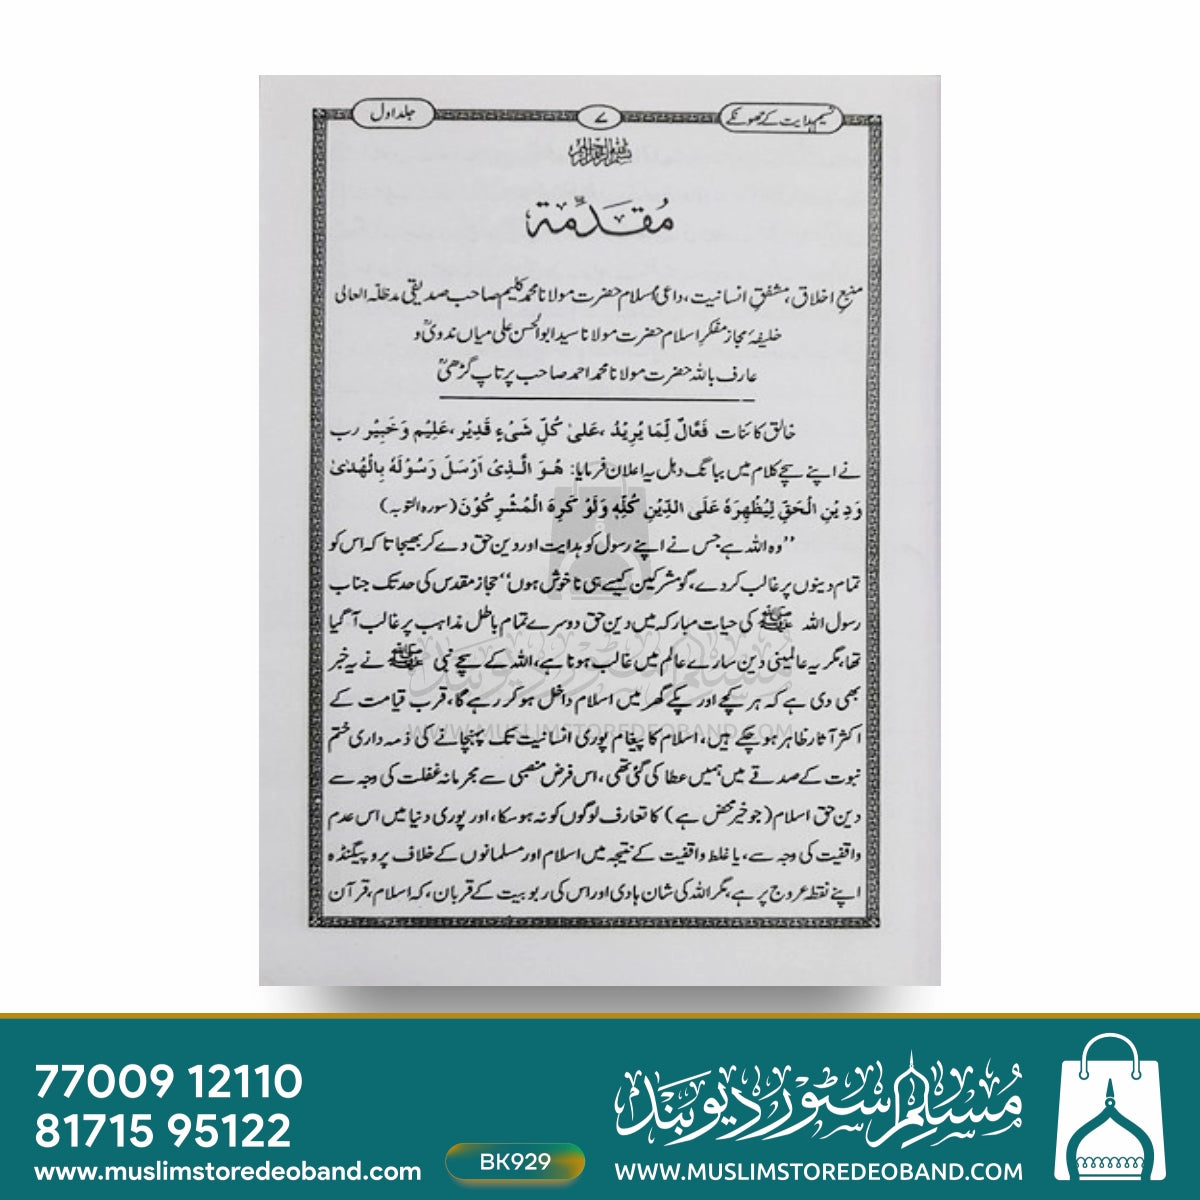 نسیم ہدایت کے جھونکے
۷
جلد اول
مُقَدِّمَۃ
منبعِ اخلاق، مشفقِ انسانیت، داعیٔ اسلام حضرت مولانا محمد کلیم صاحب صدیقی مدظلہ العالی
خلیفۂ مجاز مفکرِ اسلام حضرت مولانا سید ابوالحسن علی میاں ندویؒ و
عارف باللہ حضرت مولانا محمد احمد صاحب پرتاپ گڑھیؒ
خالق کائنات فَعَّالٌ لِّمَا یُرِیْدُ، عَلیٰ کُلِّ شَیْءٍ قَدِیْر، عَلِیْم وَ خَبِیْر رب
نے اپنے سچے کلام میں ببانگ دہل یہ اعلان فرمایا: هُوَ الَّذِیْ اَرْسَلَ رَسُوْلَهٗ بِالْهُدٰی
وَدِیْنِ الْحَقِّ لِیُظْهِرَهٗ عَلَی الدِّیْنِ کُلِّهٖ وَلَوْ کَرِهَ الْمُشْرِکُوْنَ (سورہ التوبہ)
’’وہ اللہ ہے جس نے اپنے رسول کو ہدایت اور دین حق دے کر بھیجا تا کہ اس کو
تمام دینوں پر غالب کردے، گو مشرکین کیسے ہی ناخوش ہوں‘‘ حجاز مقدس کی حد تک جناب
رسول اللہ ﷺ کی حیات مبارکہ میں دین حق دوسرے تمام باطل مذاہب پر غالب آگیا
تھا، مگر یہ عالمینی دین سارے عالم میں غالب ہونا ہے، اللہ کے سچے نبی ﷺ نے یہ خبر
بھی دی ہے کہ ہر کچے اور پکے گھر میں اسلام داخل ہوکر رہے گا، قرب قیامت کے
اکثر آثار ظاہر ہو چکے ہیں، اسلام کا پیغام پوری انسانیت تک پہنچانے کی ذمہ داری ختم
نبوت کے صدقے میں ہمیں عطا کی گئی تھی، اس فرض منصبی سے مجرمانہ غفلت کی وجہ سے
دین حق اسلام (جو خیر محض ہے) کا تعارف لوگوں کو نہ ہوسکا، اور پوری دنیا میں اس عدم
واقفیت کی وجہ سے، یا غلط واقفیت کے نتیجہ میں اسلام اور مسلمانوں کے خلاف پروپیگنڈہ
اپنے نقطۂ عروج پر ہے، مگر اللہ کی شان ہادی اور اس کی ربوبیت کے قربان، کہ اسلام، قرآن
مسلم سٹور دیوبند
WWW.MUSLIMSTOREDEOBAND.COM
77009 12110
81715 95122
www.muslimstoredeoband.com
BK929
مُسلم سٹور دیوبند
WWW.MUSLIMSTOREDEOBAND.COM